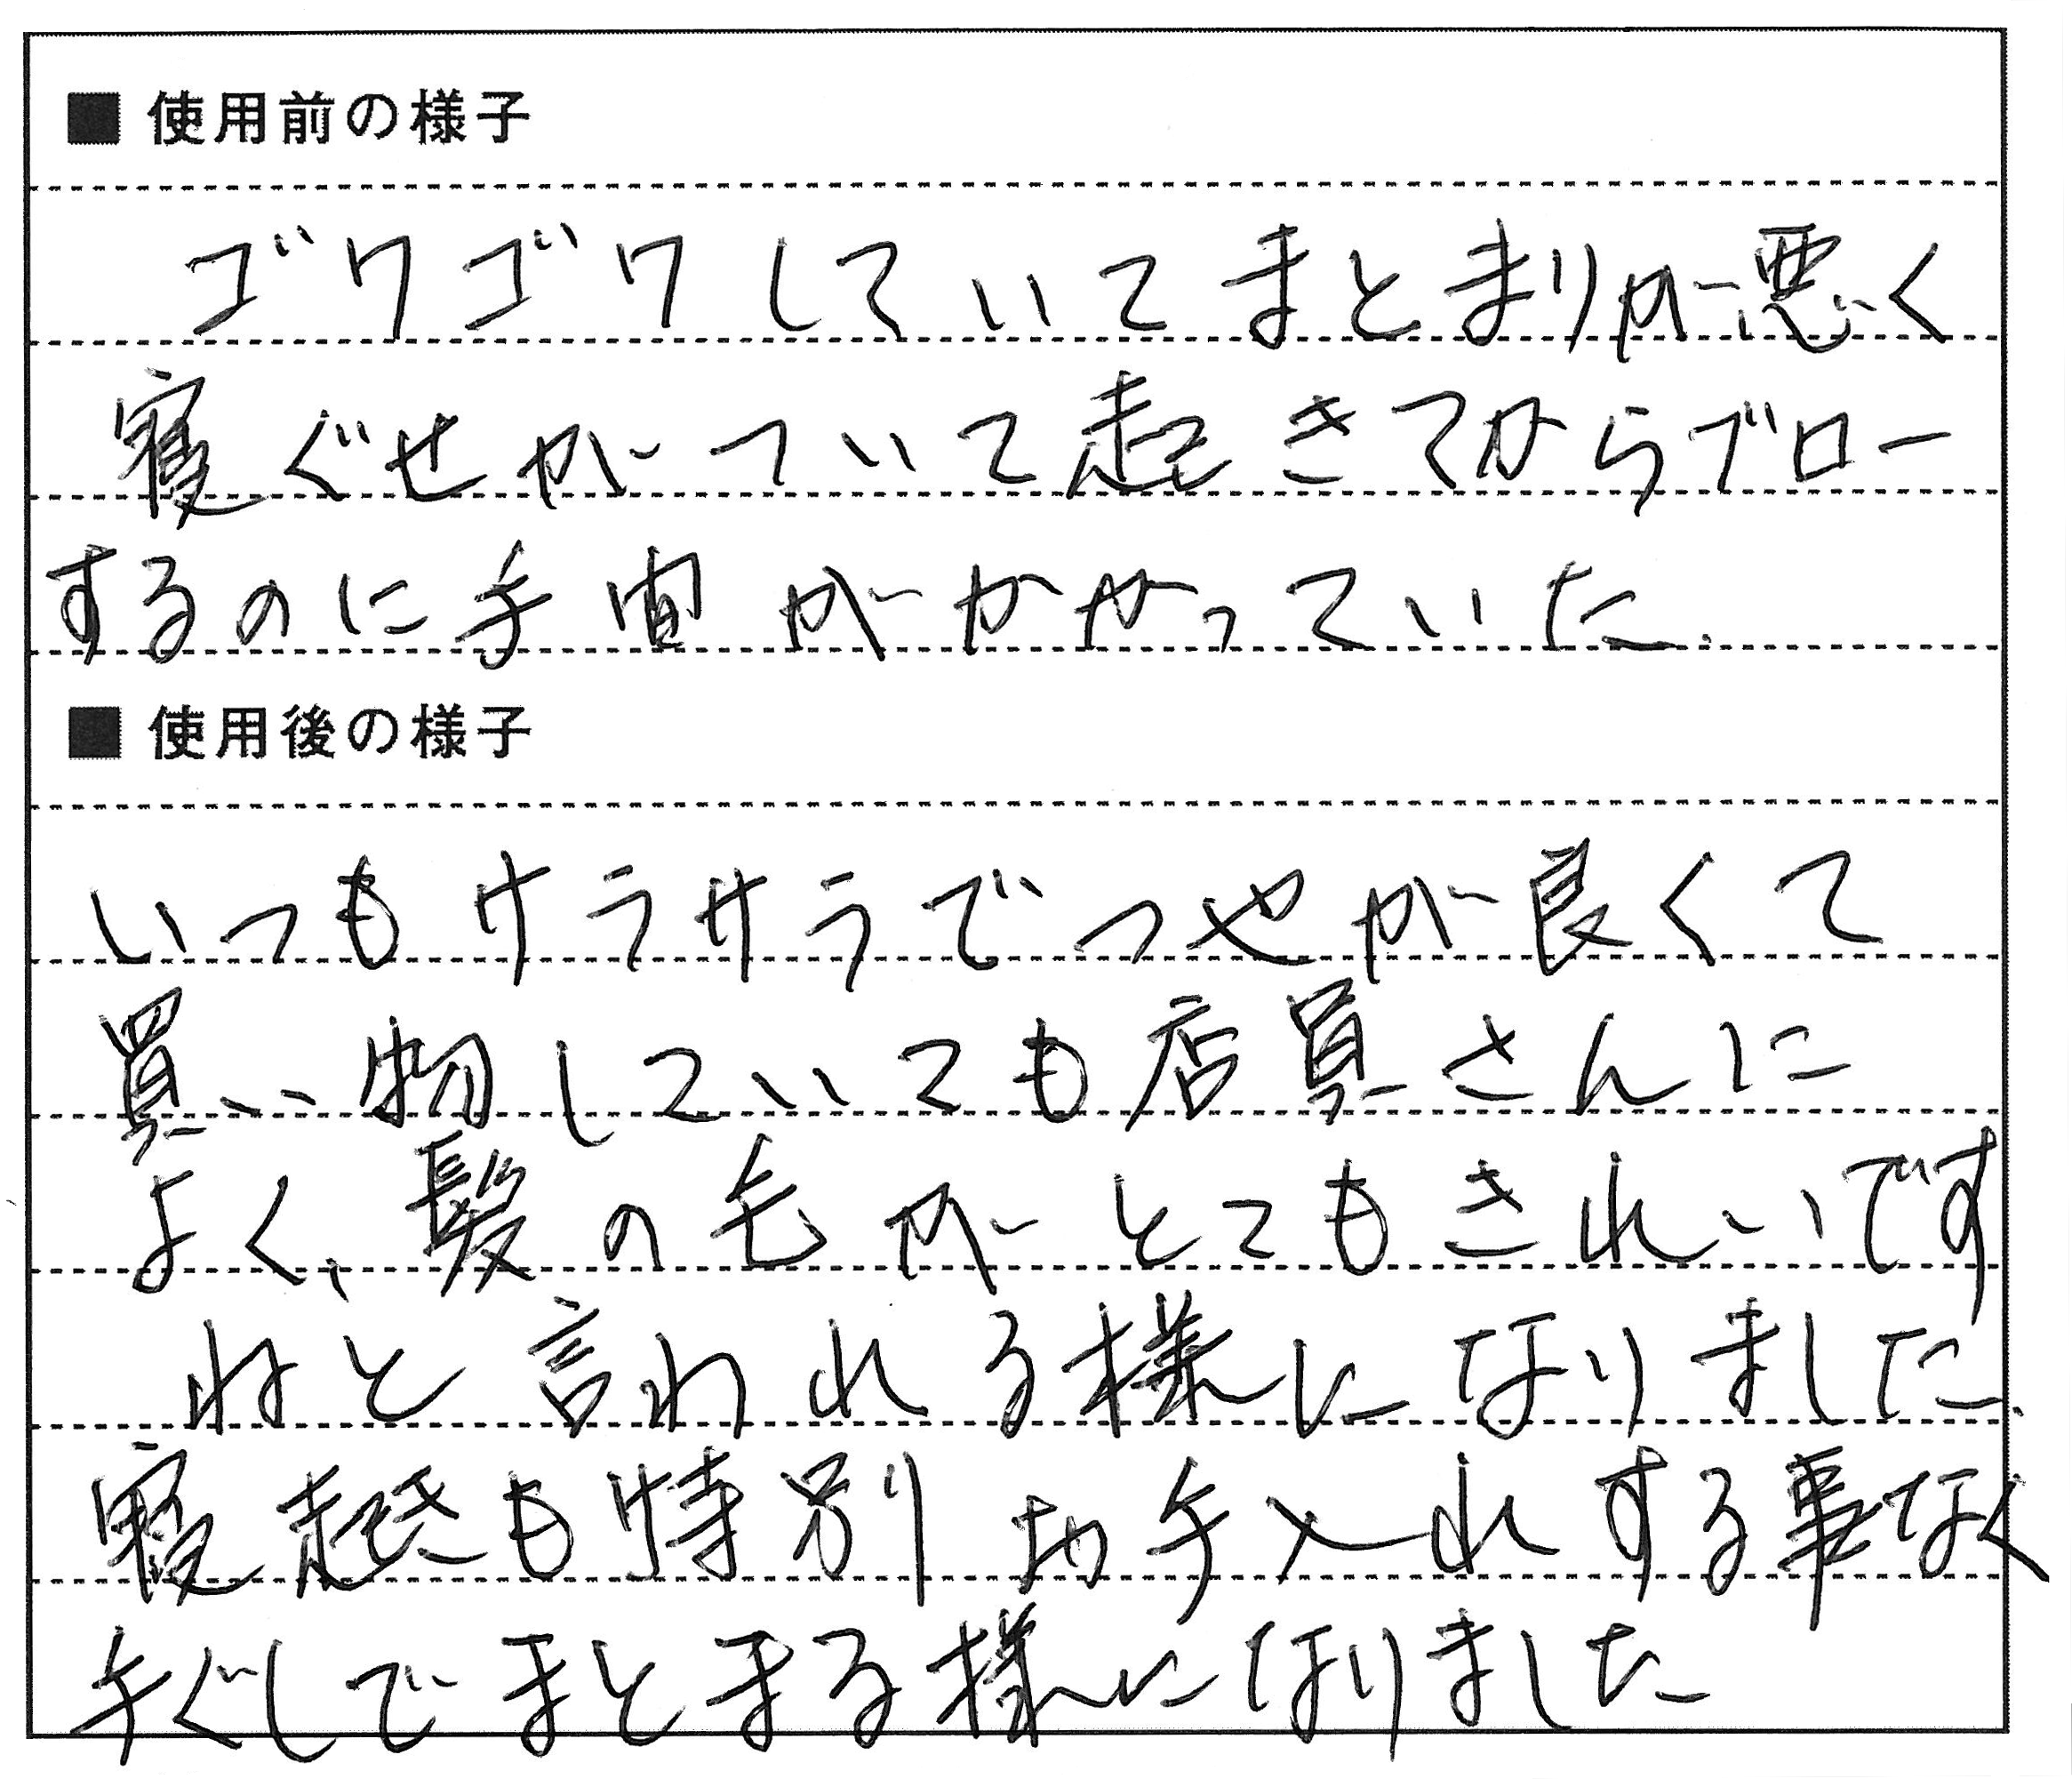 ■ 使用前の様子
ゴワゴワしていてまとまりが悪く
寝ぐせがついて起きてからブロー
するのに手間がかかっていた.
■ 使用後の様子
いつもサラサラでつやが良くて
買い物していても店員さんに
よく、髪の毛がとてもきれいです
ねと言われる様になりました.
寝起きも特別お手入れする事なく
手ぐしでまとまる様になりました